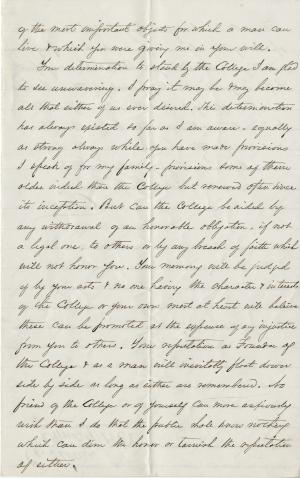 of the most important objects for which a man can
live & which you were giving me in your will.
Your determination to stand by the College I am glad
to see unwavering. I pray it may be & may become
all that either of us ever desired. This determination
has always existed so far as I am aware - equally
as strong always while you have made provisions
I speak of for my family - provisions some of them
older indeed than the College but renewed often since
its inception. But can the College be aided by
any withdrawal of an honorable obligation, if not
a legal one, to others or by any breach of faith which
will not honor you. Your memory will be judged
of by your acts & no one having the character & interests
of the College or your own most at heart will believe
these can be promoted at the expense of any injustice
from you to others. Your reputation as Founder of
the College & as a man will inevitably float down
side by side as long as either are remembered. No
friend of the College or of yourself can more anxiously
wish than I do that the public shall know nothing
which can dim the honor or tarnish the reputation
of either.